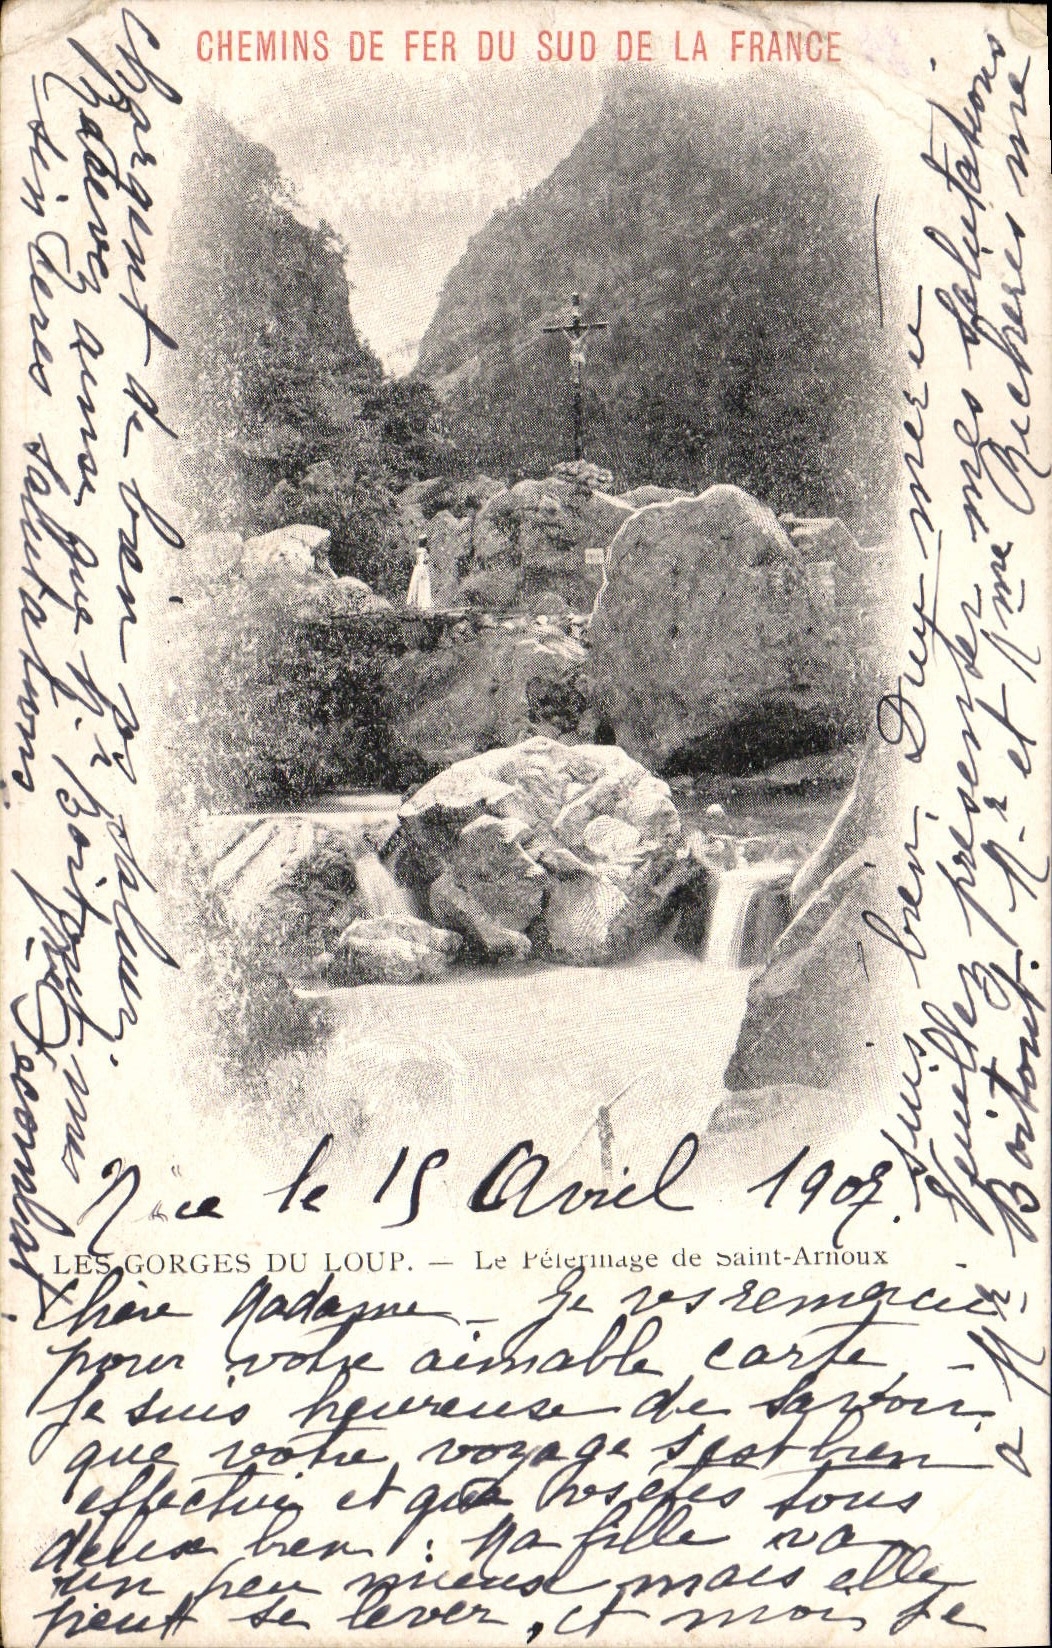 CHEMINS DE FER DU SUD DE LA FRANCE
Nice le 15 Avril 1907.
LES GORGES DU LOUP. — Le Pélerinage de Saint-Arnoux
Chère Madame — Je vs remercie
pour votre aimable carte —
Je suis heureuse de savoir
que votre voyage s'est bien
effectué et que vs êtes tous
deux bien : Ma fille va
un peu mieux mais elle
peut se lever, et moi je
suis bien
Veuillez presenter mes salutations
Boitout. Mr et Mme Richeres me
a Mr
chargent de bien
Madame ainsi que Mr Boitout mes
sinceres salutations